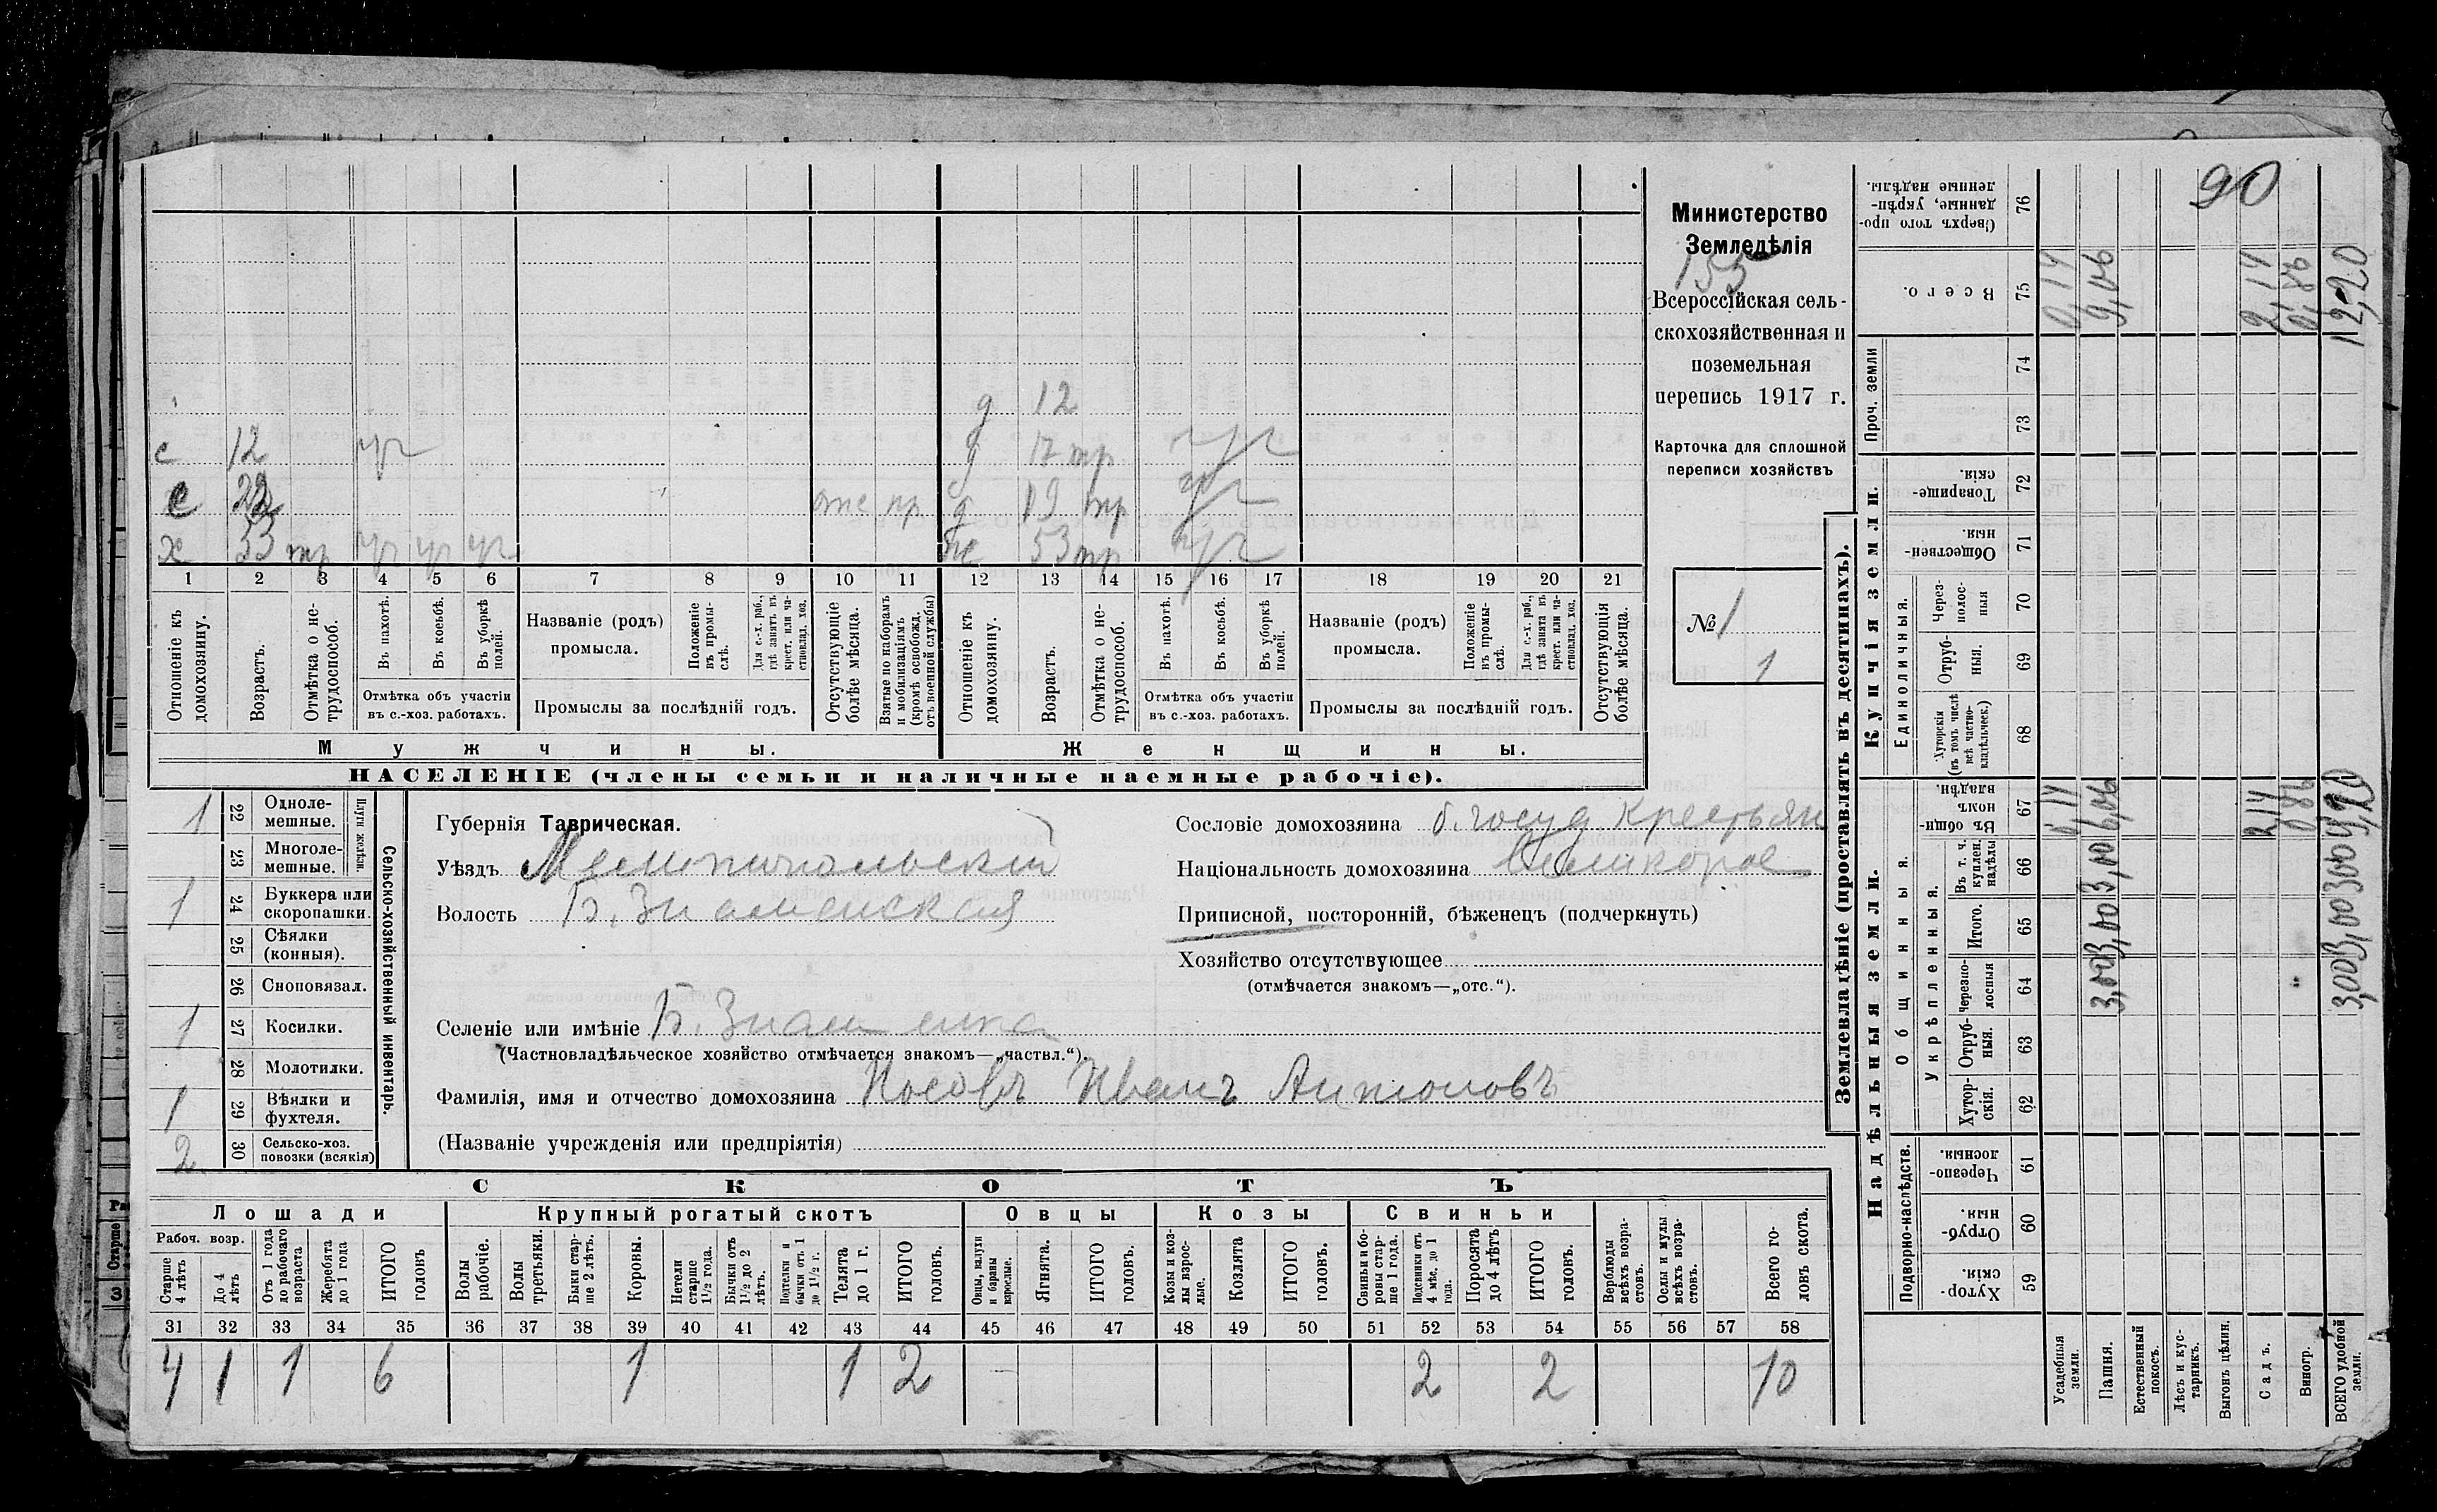 90
Министерство
Земледѣлія
155
Всероссійская сель-
скохозяйственная и
поземельная
перепись 1917 г.
Карточка для сплошной
переписи хозяйствъ
№ 1
1
д 12
с 12 чг д 17 тр чг
с 22 отс пр д 19 тр чг
х 53 тр чг чг чг ж 53 тр чг
1 2 3 4 5 6 7 8 9 10 11 12 13 14 15 16 17 18 19 20 21
Отношеніе къ домохозяину.
Возрастъ.
Отмѣтка о не-трудоспособ.
Въ пахотѣ.
Въ косьбѣ.
Въ уборкѣ полей.
Отмѣтка объ участіи
въ с.-хоз. работахъ.
Названіе (родъ)
промысла.
Положеніе въ промы-слѣ.
Для с.-х. раб., гдѣ занятъ въ крест. или ча-стновлад. хоз.
Промыслы за послѣдній годъ.
Отсутствующіе болѣе мѣсяца.
Взятые по наборамъ и мобилизаціямъ (кромѣ освобожд. отъ военной службы)
Отношеніе къ домохозяину.
Возрастъ.
Отмѣтка о не-трудоспособ.
Въ пахотѣ.
Въ косьбѣ.
Въ уборкѣ полей.
Отмѣтка объ участіи
въ с.-хоз. работахъ.
Названіе (родъ)
промысла.
Положеніе въ промы-слѣ.
Для с.-х. раб., гдѣ занята въ крест. или ча-стновлад. хоз.
Промыслы за послѣдній годъ.
Отсутствующія болѣе мѣсяца.
Мужчины. Женщины.
НАСЕЛЕНІЕ (члены семьи и наличные наемные рабочіе).
1 22 Одноле-мешные.
23 Многоле-мешные.
Плуги желѣзн.
1 24 Буккера или скоропашки.
25 Сѣялки (конныя).
26 Сноповязал.
1 27 Косилки.
28 Молотилки.
1 29 Вѣялки и фухтеля.
2 30 Сельско-хоз. повозки (всякія)
Сельско-хозяйственный инвентарь.
Губернія Таврическая.
Уѣздъ Мелитопольскій
Волость Б. Знаменская
Сословіе домохозяина б. госуд. крестьян
Національность домохозяина великоросс
Приписной, посторонній, бѣженецъ (подчеркнуть)
Хозяйство отсутствующее
(отмѣчается знакомъ—„отс.“).
Селеніе или имѣніе Б. Знаменка
(Частновладѣльческое хозяйство отмѣчается знакомъ—„частвл.“).
Фамилія, имя и отчество домохозяина Носовъ Иванъ Антоновъ
(Названіе учрежденія или предпріятія)
СКОТЪ
Лошади Крупный рогатый скотъ Овцы Козы Свиньи
Рабоч. возр.
Старше 4 лѣтъ
До 4 лѣтъ
Отъ 1 года до рабочаго возраста
Жеребята до 1 года
ИТОГО головъ
Волы рабочіе.
Волы третьяки.
Быки стар-ше 2 лѣтъ.
Коровы.
Нетели старше 1½ года.
Бычки отъ 1½ до 2 лѣтъ.
Подтелки и бычки отъ 1 до 1½ г.
Телята до 1 г.
ИТОГО головъ.
Овцы, валухи и бараны взрослые.
Ягнята.
ИТОГО головъ.
Козы и коз-лы взрос-лые.
Козлята
ИТОГО головъ.
Свиньи и бо-ровы стар-ше 1 года.
Подсвинки отъ 4 мѣс. до 1 года.
Поросята до 4 лѣтъ
ИТОГО головъ.
Верблюды всѣхъ возра-стовъ.
Ослы и мулы всѣхъ возра-стовъ.
Всего го-ловъ скота.
31 32 33 34 35 36 37 38 39 40 41 42 43 44 45 46 47 48 49 50 51 52 53 54 55 56 57 58
4 1 1 6 1 1 2 2 2 10
Землевладѣніе (проставлять въ десятинахъ).
Надѣльныя земли. Купчія земли. Проч. земли
Подворно-наслѣдств.
Общинныя.
Укрѣпленныя.
Единоличныя.
59 Хутор-скія
60 Отруб-ныя.
61 Черезпо-лосныя.
62 Хутор-скія.
63 Отруб-ныя.
64 Черезпо-лосныя
65 Итого.
66 Въ т. ч. куплен. надѣлы
67 Въ общи-номъ владѣн.
68 Хуторскія (въ томъ числѣ всѣ частно-владѣльческ.)
69 Отруб-ныя.
70 Через-полос-ныя
71 Обществен-ныя.
72 Товарище-скія.
73
74
75 Всего.
76 Сверхъ того про-данные, укрѣп-ленные надѣлы.
Усадебныя земли. 0,14 0,14
Пашня. 3,00 3,00 3,00 6,06 9,06
Естественный покосъ.
Лѣсъ и кус-тарникъ.
Выгонъ цѣлин.
Садъ. 2,14 2,14
Виногр. 0,86 0,86
ВСЕГО удобной земли. 3,00 3,00 3,00 9,20 12,20